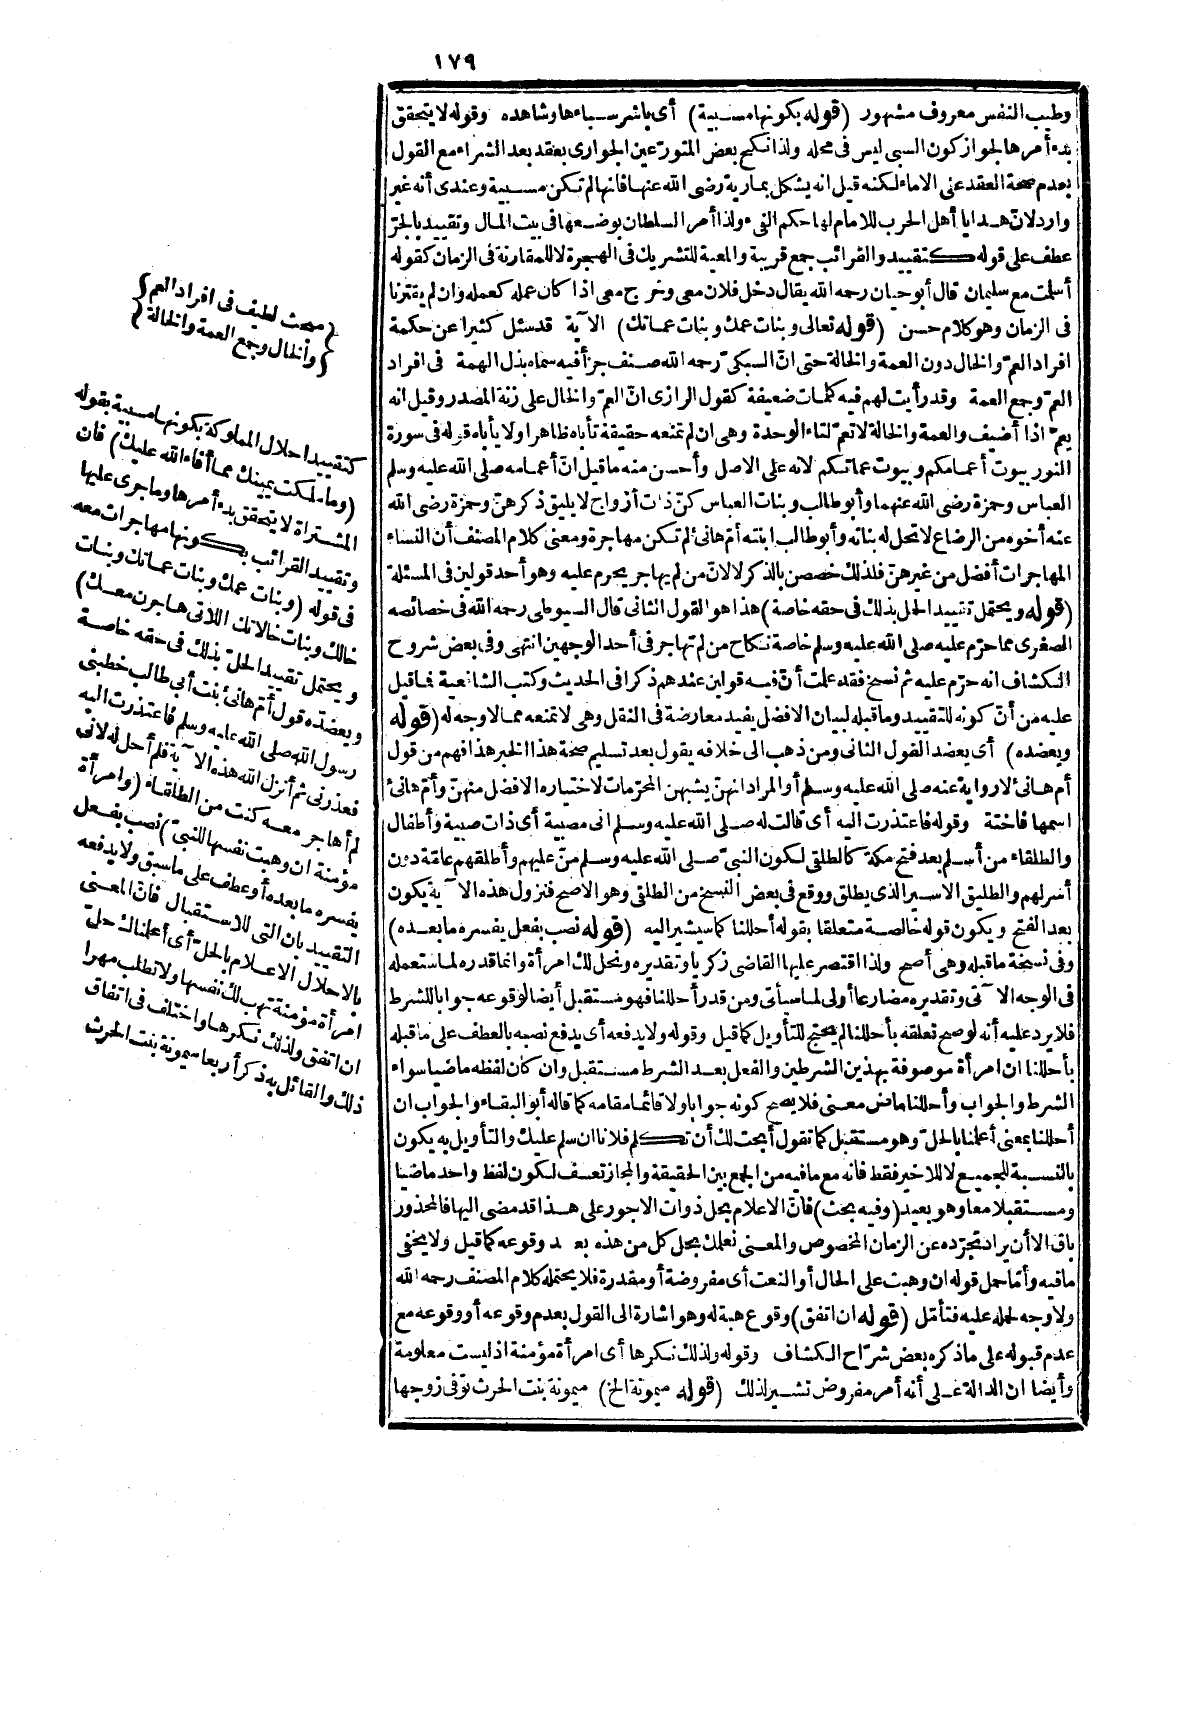 ١٧٩
وطيب النفس معروف مشهور (قوله بكونها مسبية) أى باشر سباءها وشاهده وقوله لا يتحقق
بدء أمرها لجواز كون السبى ليس فى محله ولذا نكح بعض المتورّعين الجوارى بعقد بعد الشراء مع القول
بعدم صحة العقد على الاماء لكنه قيل انه يشكل بمارية رضى الله عنها فانها لم تكن مسبية وعندى أنه غير
وارد لانّ هدايا أهل الحرب للامام لها حكم الفىء ولذا أمر السلطان بوضعها فى بيت المال وتقييد بالجرّ
عطف على قوله كتقييد والقرائب جمع قريبة والمعية للتشريك فى الهجرة لا للمقارنة فى الزمان كقوله
أسلمت مع سليمان قال أبو حيان رحمه الله يقال دخل فلان معى وخرج معى اذا كان عمله كعمله وان لم يقترنا
فى الزمان وهو كلام حسن (قوله تعالى وبنات عمك وبنات عماتك) الآية قد سئل كثيرا عن حكمة
افراد العمّ والخال دون العمة والخالة حتى انّ السبكىّ رحمه الله صنف جزأ فيه سماه بذل الهمة فى افراد
العمّ وجمع العمة وقد رأيت لهم فيه كلمات ضعيفة كقول الرازى انّ العمّ والخال على زنة المصدر وقيل انه
يعمّ اذا أضيف والعمة والخالة لا تعمّ لتاء الوحدة وهى ان لم تمنعه حقيقة تأباه ظاهرا ولا يأباه قوله فى سورة
النور بيوت أعمامكم وبيوت عماتكم لانه على الاصل وأحسن منه ما قيل انّ أعمامه صلى الله عليه وسلم
العباس وحمزة رضى الله عنهما وأبو طالب وبنات العباس كنّ ذات أزواج لا يليق ذكرهنّ وحمزة رضى الله
عنه أخوه من الرضاع لا تحل له بناته وأبو طالب ابنته أمّ هانئ لم تكن مهاجرة ومعنى كلام المصنف أن النساء
المهاجرات أفضل من غيرهنّ فلذلك خصصن بالذكر لا لانّ من لم يهاجر يحرم عليه وهو أحد قولين فى المسئلة
(قوله ويحتمل تقييد الحل بذلك فى حقه خاصة) هذا هو القول الثانى قال السيوطى رحمه الله فى خصائصه
الصغرى مما حرّم عليه صلى الله عليه وسلم خاصة نكاح من لم تهاجر فى أحد الوجهين انتهى وفى بعض شروح
الكشاف انه حرّم عليه ثم نسخ فقد علمت أنّ فيه قولين عندهم ذكرا فى الحديث وكتب الشافعية فما قيل
عليه من أنّ كونه للتقييد وما قبله لبيان الافضل يفيد معارضة فى النقل وهى لا تمنعه مما لا وجه له (قوله
ويعضده) أى يعضد القول الثانى ومن ذهب الى خلافه يقول بعد تسليم صحة هذا الخبر هذا فهم من قول
أم هانئ لا رواية عنه صلى الله عليه وسلم أو المراد انهنّ يشبهن المحرّمات لاختياره الافضل منهنّ وأمّ هانئ
اسمها فاختة وقوله فاعتذرت اليه أى قالت له صلى الله عليه وسلم انى مصبية أى ذات صبية وأطفال
والطلقاء من أسلم بعد فتح مكة كالطلقى لكون النبىّ صلى الله عليه وسلم منّ عليهم وأطلقهم عامّة دون
أسر لهم والطليق الاسير الذى يطلق ووقع فى بعض النسخ من الطلقى وهو الاصح فنزول هذه الآية يكون
بعد الفتح ويكون قوله خالصة متعلقا بقوله أحللنا كما سيشير اليه (قوله نصب بفعل يفسره ما بعده)
وفى نسخة ما قبله وهى أصح ولذا اقتصر عليها القاضى زكريا وتقديره ونحل لك امرأة وانما قدره لما ستعمله
فى الوجه الآتى وتقديره مضارعا أولى لما سيأتى ومن قدر أحللنا فهو مستقبل أيضا لوقوعه جوابا للشرط
فلا يرد عليه أنه لو صح تعلقه بأحللنا لم يحتج للتأويل كما قيل وقوله ولا يدفعه أى يدفع نصبه بالعطف على ما قبله
بأحللنا ان امرأة موصوفة بهذين الشرطين والفعل بعد الشرط مستقبل وان كان لفظه ماضيا سواء
الشرط والجواب وأحللنا ماض معنى فلا يصح كونه جوابا ولا قائما مقامه كما قاله أبو البقاء والجواب ان
أحللنا بمعنى أعلمنا بالحلّ وهو مستقبل كما تقول أبحت لك أن تكلم فلانا ان سلم عليك والتأويل به يكون
بالنسبة للجميع لا للاخير فقط فانه مع ما فيه من الجمع بين الحقيقة والمجاز تعسف لكون لفظ واحد ماضيا
ومستقبلا معا وهو بعيد (وفيه بحث) فانّ الاعلام بحل ذوات الاجور على هذا قد مضى اليها فالمحذور
باق الا أن يراد تجرّده عن الزمان المخصوص والمعنى نعلمك بحل كل من هذه بعد وقوعه كما قيل ولا يخفى
ما فيه وأمّا جمل قوله ان وهبت على الحال أو النعت أى مفروضة أو مقدرة فلا يحتمله كلام المصنف رحمه الله
ولا وجه لحمله عليه فتأمّل (قوله ان اتفق) وقوع هبة له وهو اشارة الى القول بعدم وقوعه أو وقوعه مع
عدم قبوله على ما ذكره بعض شرّاح الكشاف وقوله ولذلك نكرها أى امرأة مؤمنة اذ ليست معلومة
وأيضا ان الدالة على أنه أمر مفروض تشير لذلك (قوله ميمونة الخ) ميمونة بنت الحرث توفى زوجها
مبحث لطيف فى افراد العم
والخال وجمع العمة والخالة
كتقييد احلال المملوكة بكونها مسبية بقوله
(وما ملكت يمينك مما أفاء الله عليك) فان
المشتراة لا يتحقق بدء أمرها وما جرى عليها
وتقييد القرائب بكونها مهاجرات معه
فى قوله (وبنات عمك وبنات عماتك وبنات
خالك وبنات خالاتك اللاتى هاجرن معك)
ويحتمل تقييد الحلّ بذلك فى حقه خاصة
ويعضده قول أمّ هانئ بنت أبى طالب خطبنى
رسول الله صلى الله عليه وسلم فاعتذرت اليه
فعذرنى ثم أنزل الله هذه الآية فلم أحل له لانى
لم أهاجر معه كنت من الطلقاء (وامرأة
مؤمنة ان وهبت نفسها للنبىّ) نصب بفعل
يفسره ما بعده أو عطف على ما سبق ولا يدفعه
التقييد بان التى للاستقبال فانّ المعنى
بالاحلال الاعلام بالحلّ أى أعلمناك حلّ
امرأة مؤمنة تهب لك نفسها ولا تطلب مهرا
ان اتفق ولذلك نكرها واختلف فى اتفاق
ذلك والقائل به ذكر أربعا ميمونة بنت الحرث